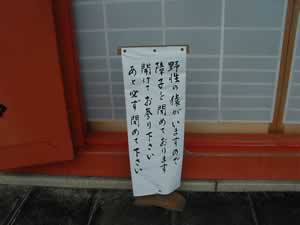 野性の猿がいますので
障子を閉めております
開けてお参り下さい
あと必ず閉めて下さい